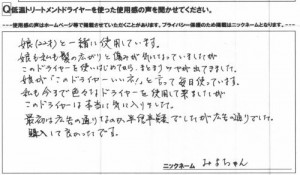 Q低温トリートメントドライヤーを使った使用感の声を聞かせてください。
使用感の声はホームページ等で掲載させていただくことがあります。プライバシー保護のため掲載はニックネームとなります。
娘(22才)と一緒に使用しています。
娘も私も髪の広がりと傷みが気になっていましたが
このドライヤーを使いはじめてから、まとまりツヤが出てきました。
娘が「このドライヤーいいネ」と言って毎日使っています。
私も今まで色々なドライヤーを使用して来ましたが
このドライヤーは本当に気に入りました。
最初は広告の通りなのか、半信半疑でしたが広告の通りでした。
購入して良かったです。
ニックネーム みよちゃん